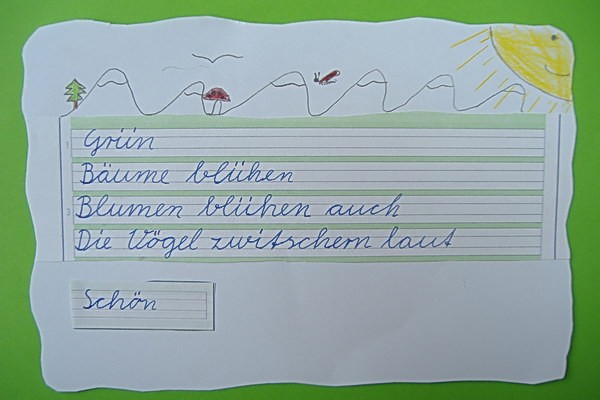 Grün
Bäume blühen
Blumen blühen auch
Die Vögel zwitschern laut
Schön